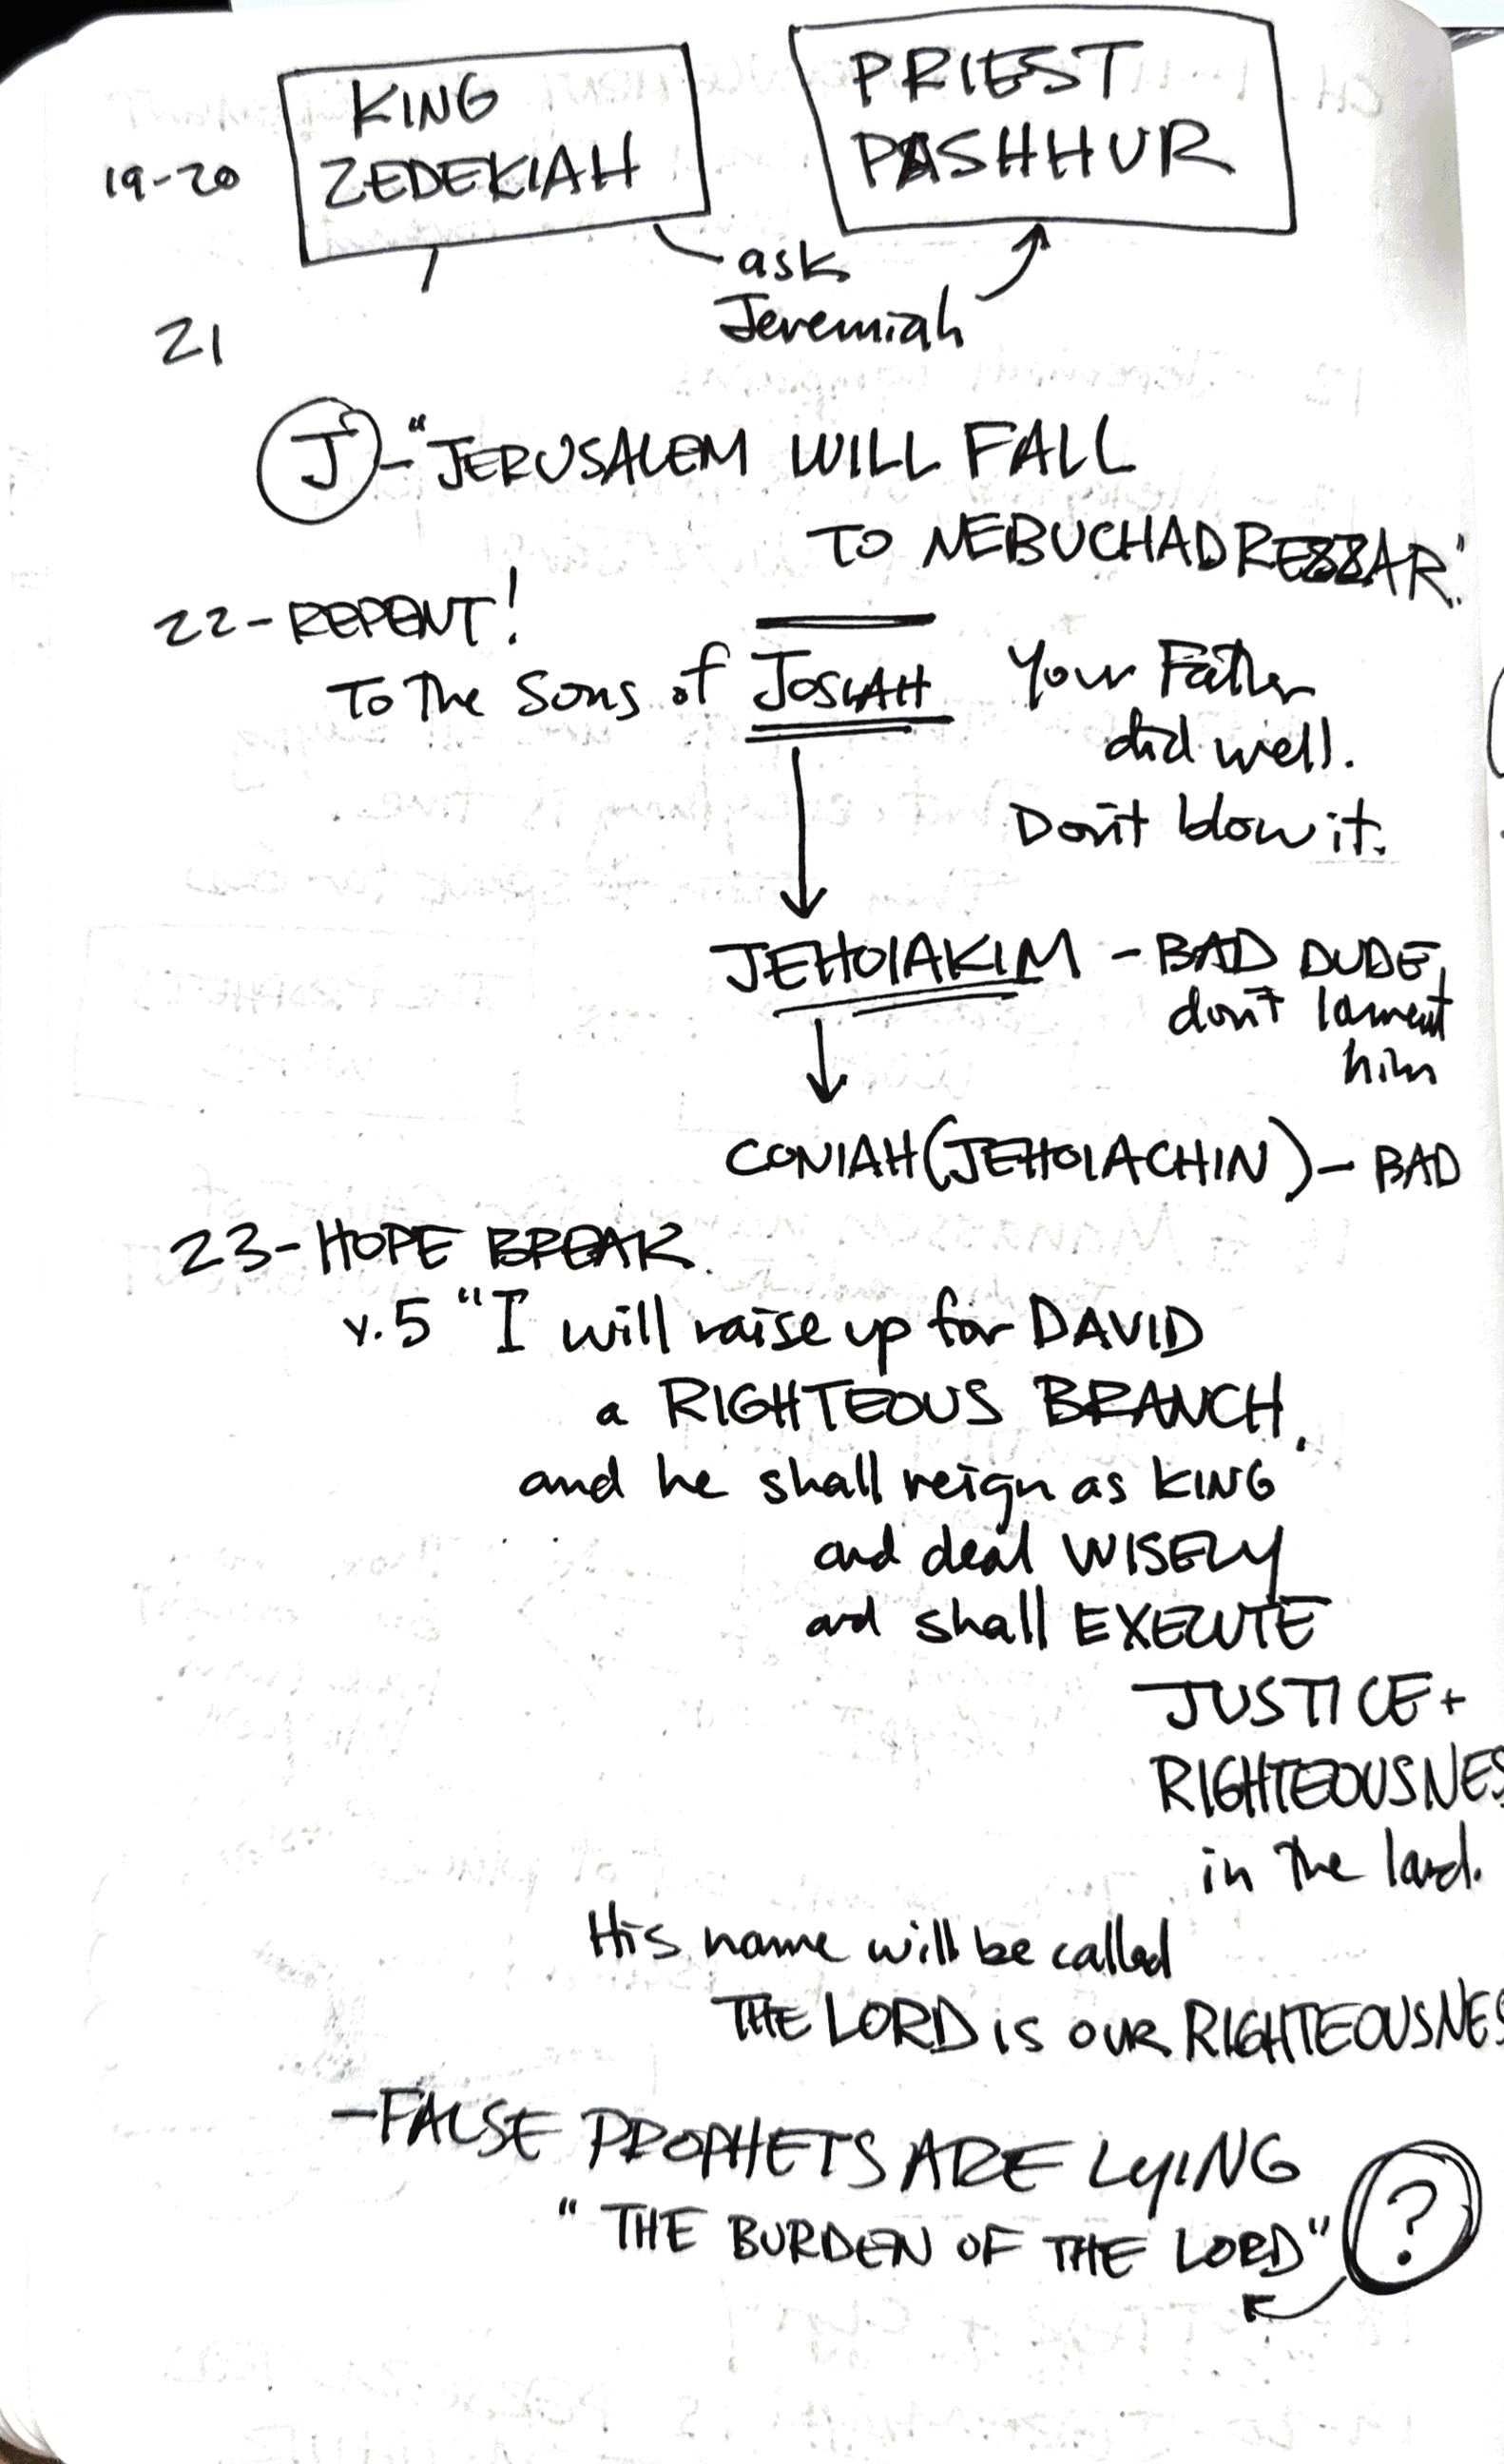 KING
ZEDEKIAH
PRIEST
PASHHUR
19-20
ask
Jeremiah
21
J - "JERUSALEM WILL FALL
TO NEBUCHADREZZAR."
22 - REPENT!
To The Sons of JOSIAH
Your Father
did well.
Don't blow it.
JEHOIAKIM - BAD DUDE,
don't lament
him
CONIAH (JEHOIACHIN) - BAD
23 - HOPE BREAK.
v.5 "I will raise up for DAVID
a RIGHTEOUS BRANCH,
and he shall reign as KING
and deal WISELY
and shall EXECUTE
JUSTICE +
RIGHTEOUSNES
in the land.
His name will be called
THE LORD is OUR RIGHTEOUSNES
- FALSE PROPHETS ARE LYING
"THE BURDEN OF THE LORD" ?